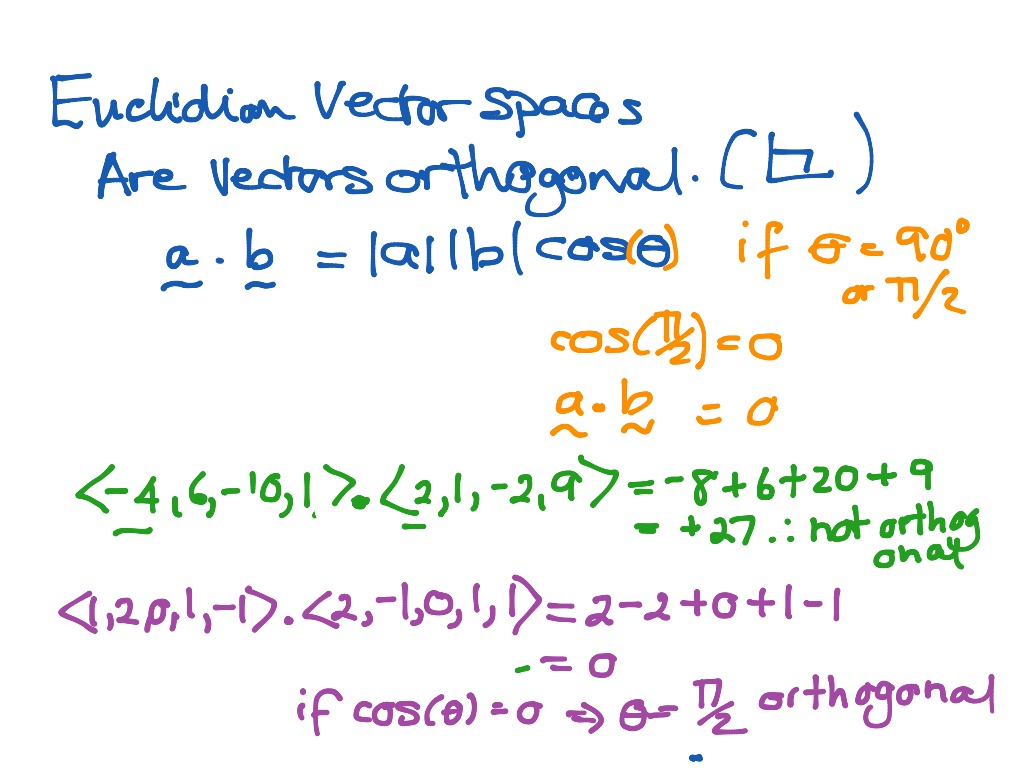 Euclidian Vector spaces
Are vectors orthogonal. (∟)
a · b = |a||b| cos(θ) if θ = 90°
or π/2
cos(π/2) = 0
a · b = 0
<-4, 6, -10, 1> · <2, 1, -2, 9> = -8 + 6 + 20 + 9
= +27 ∴ not orthog
onal
<1, 2, 0, 1, -1> · <2, -1, 0, 1, 1> = 2 - 2 + 0 + 1 - 1
= 0
if cos(θ) = 0 ⇒ θ = π/2 orthogonal